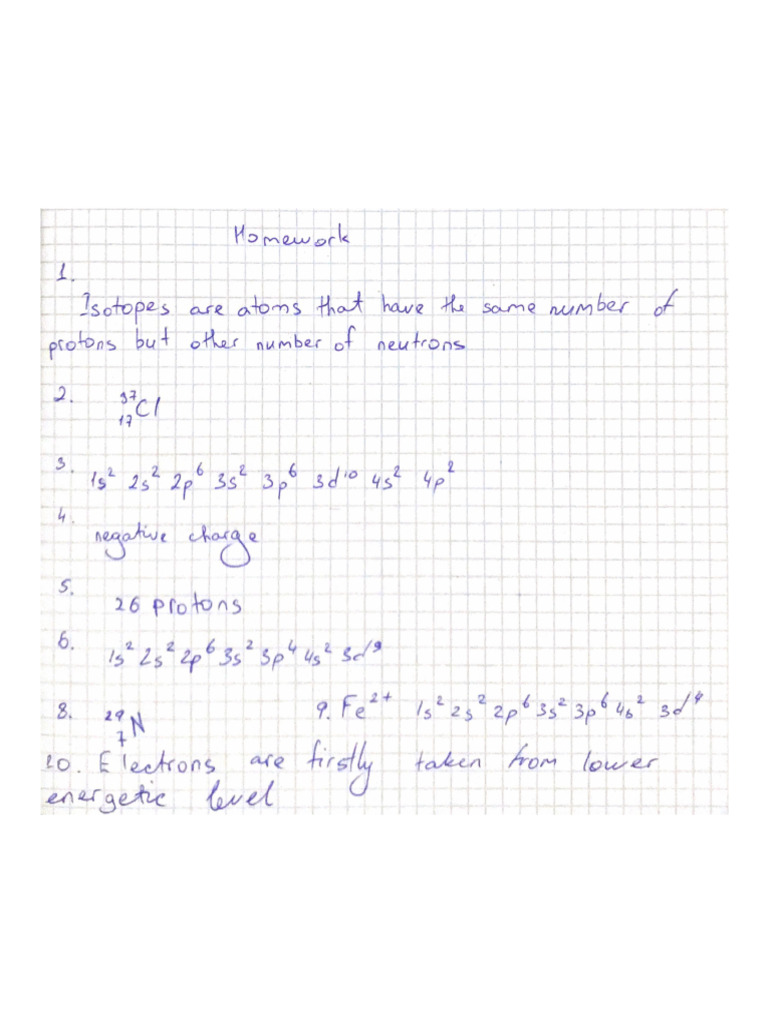 Homework
1.
Isotopes are atoms that have the same number of
protons but other number of neutrons
2. ³⁷₁₇Cl
3. 1s² 2s² 2p⁶ 3s² 3p⁶ 3d¹⁰ 4s² 4p²
4. negative charge
5. 26 protons
6. 1s² 2s² 2p⁶ 3s² 3p⁴ 4s² 3d⁹
8. ²⁹₇N 9. Fe²⁺ 1s² 2s² 2p⁶ 3s² 3p⁶ 4s² 3d⁴
10. Electrons are firstly taken from lower
energetic level